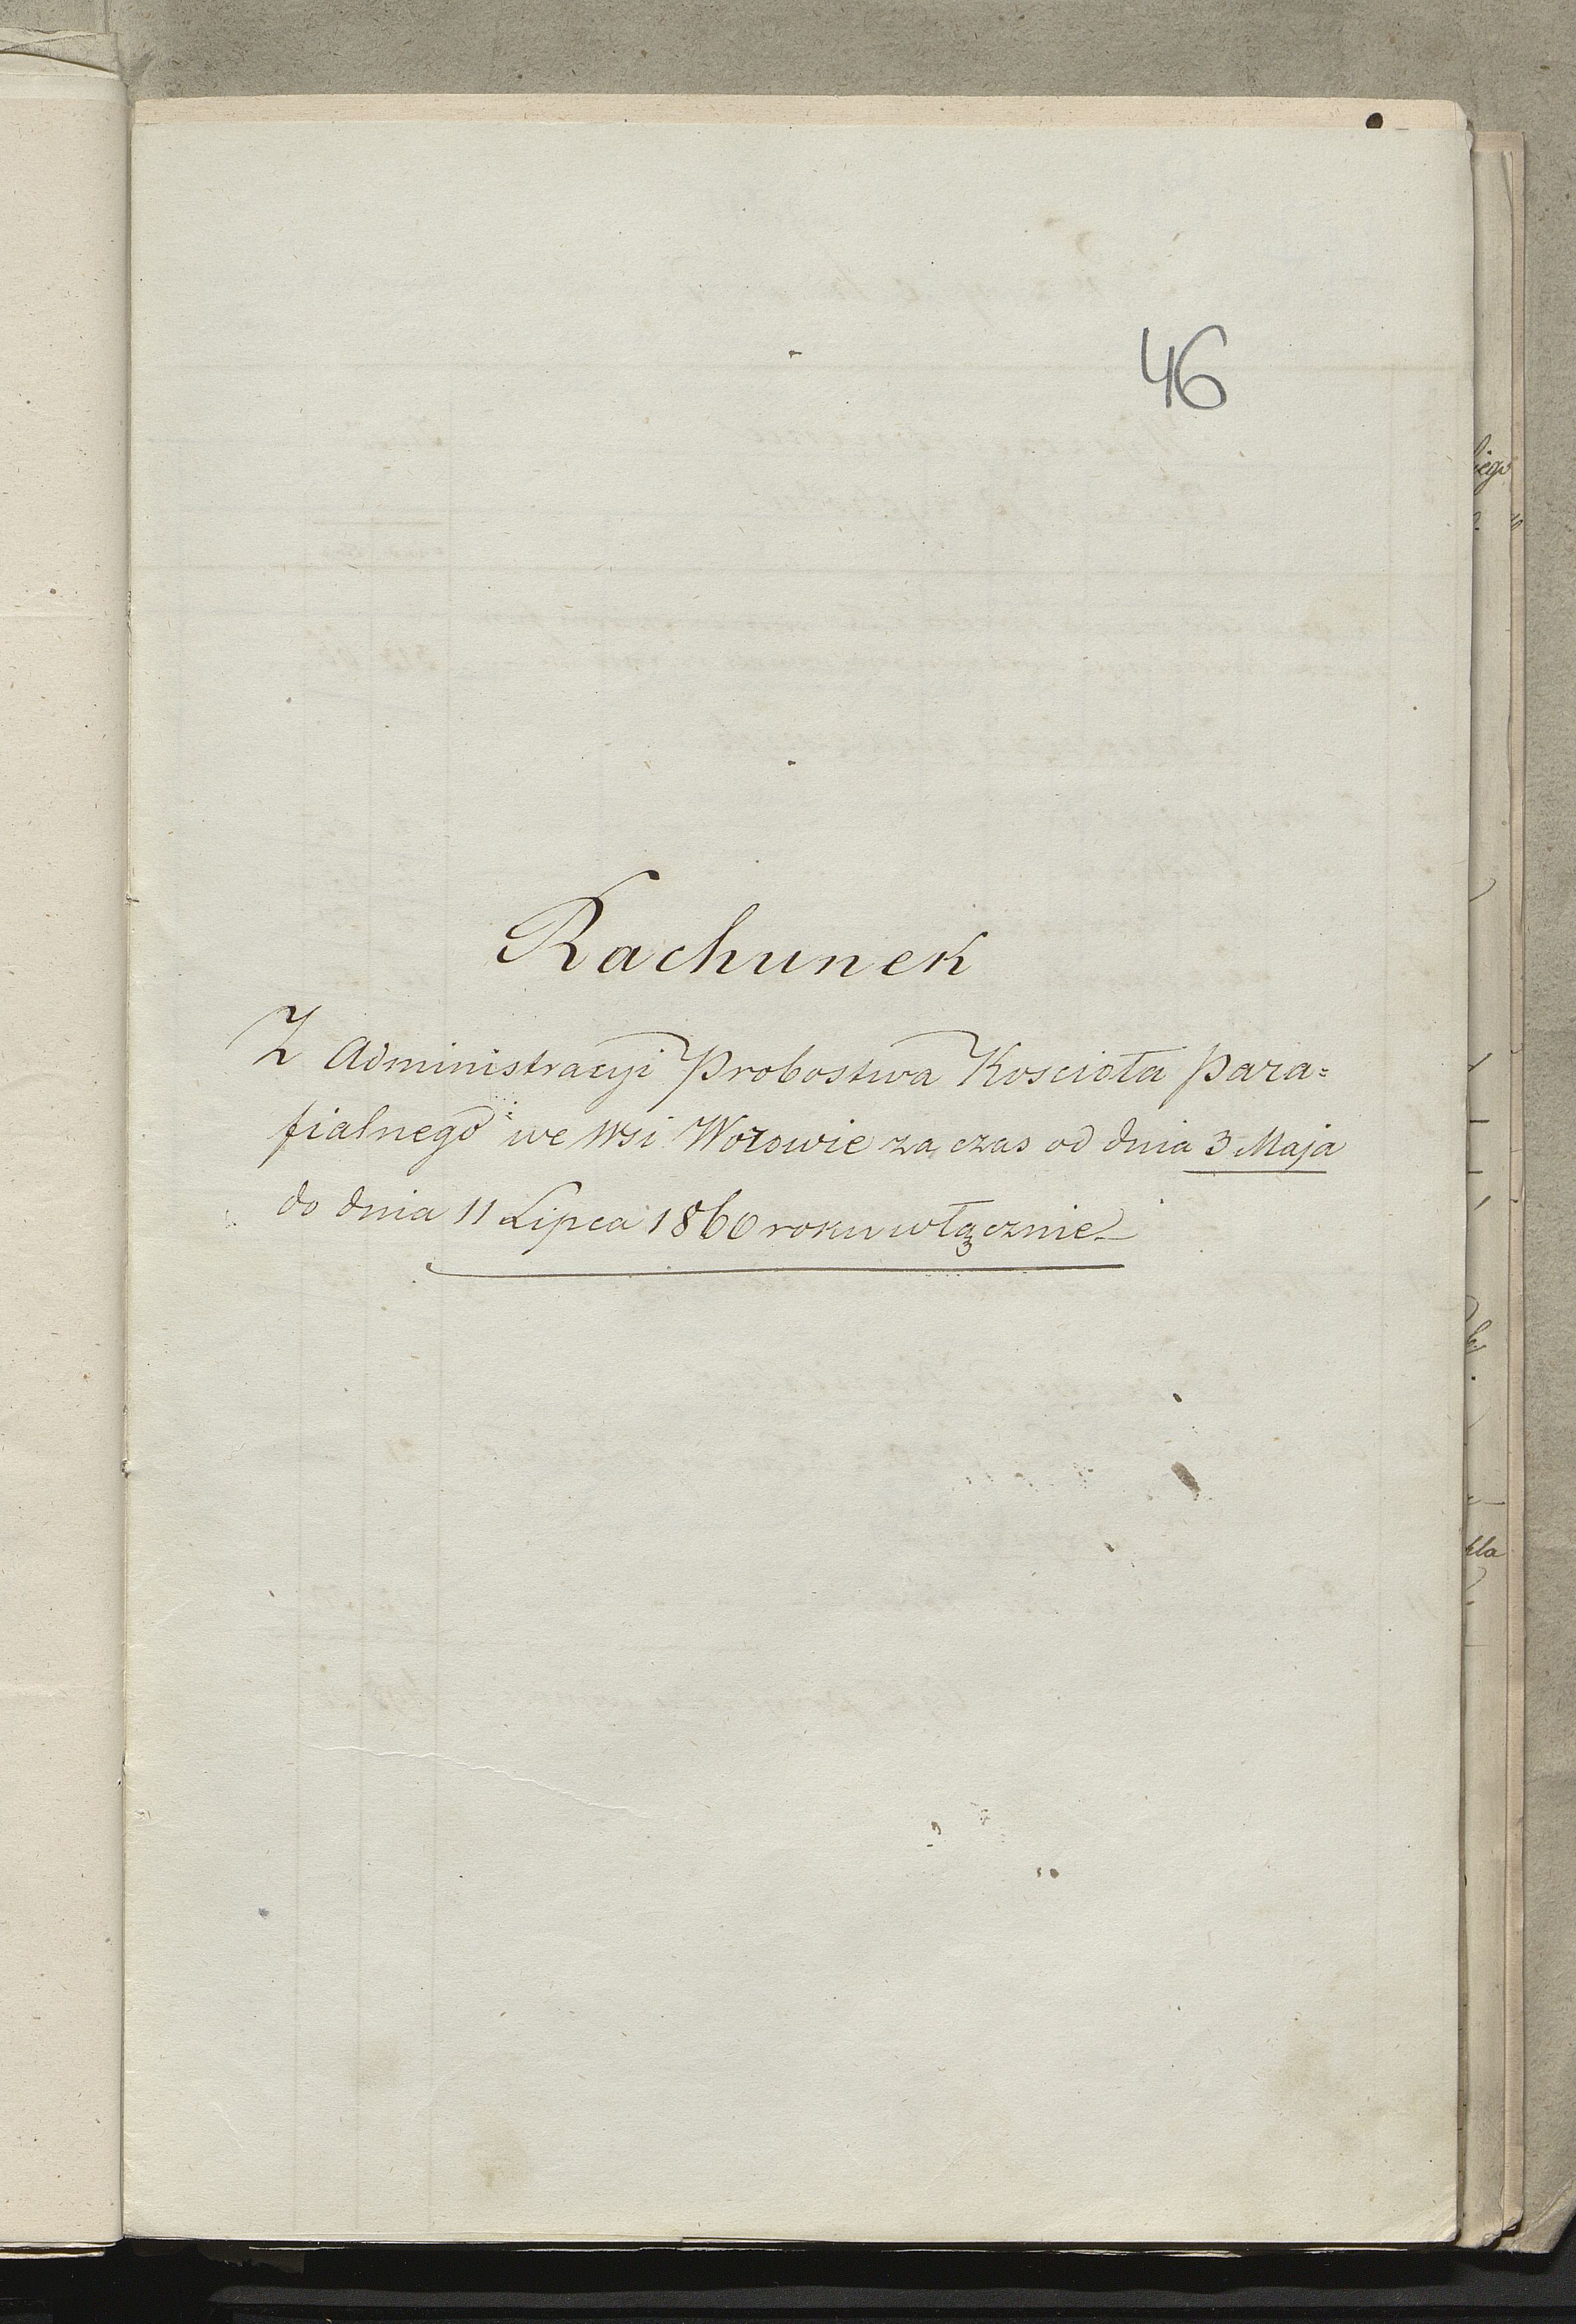 46
Rachunek
Z Administracyi Probostwa Kościoła Para=
fialnego we Wsi Worowie za czas od dnia 3 Maja
do dnia 11 Lipca 1860 roku włącznie